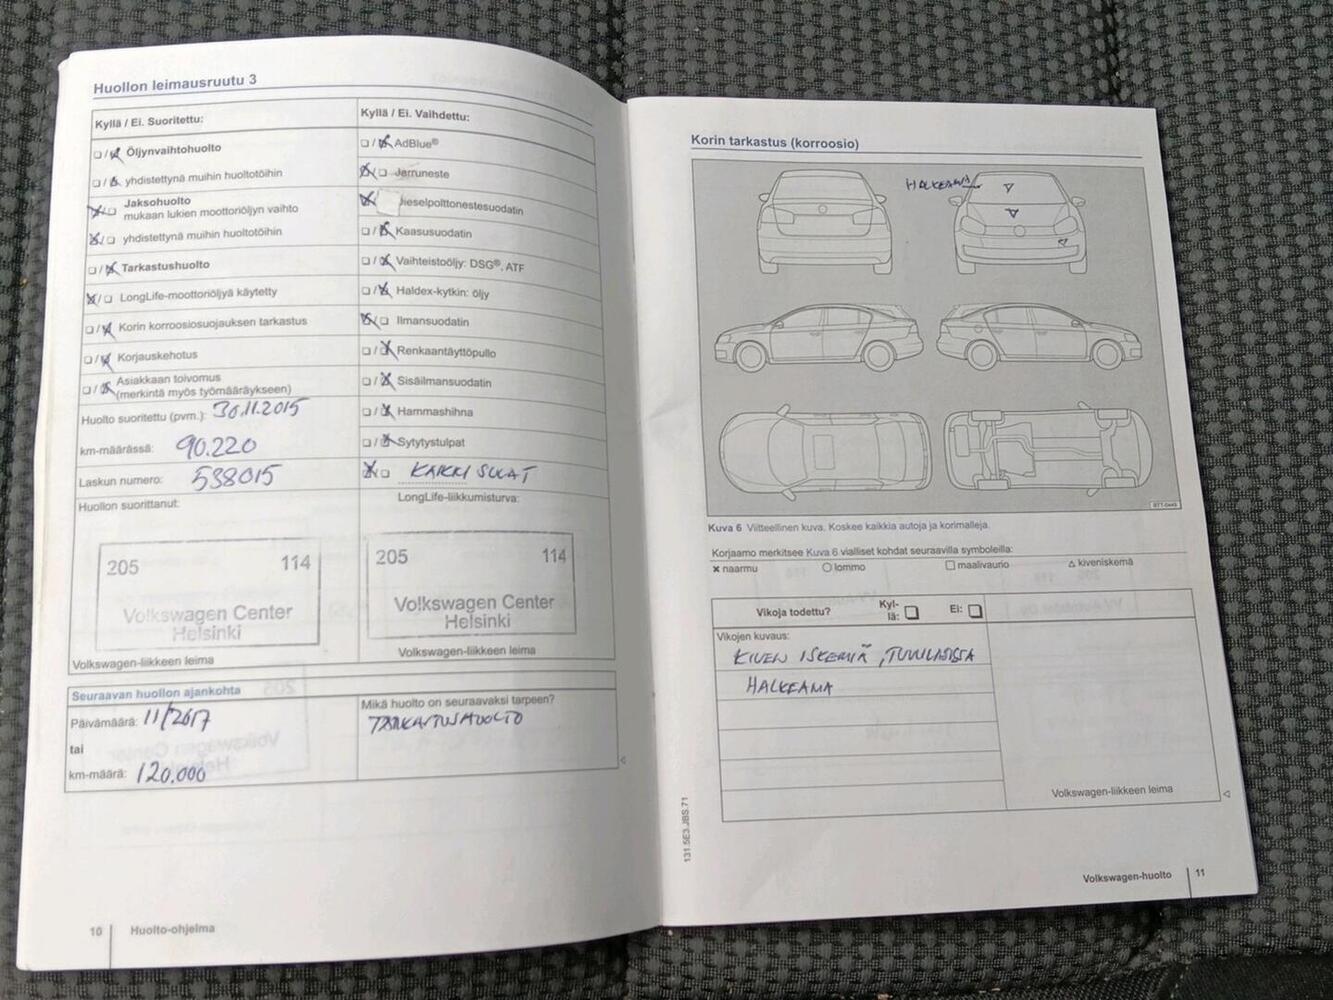 Huollon leimausruutu 3
Kyllä / Ei. Suoritettu:
Öljynvaihtohuolto
yhdistettynä muihin huoltotöihin
Jaksohuolto
mukaan lukien moottoriöljyn vaihto
yhdistettynä muihin huoltotöihin
Tarkastushuolto
LongLife-moottoriöljyä käytetty
Korin korroosiosuojauksen tarkastus
Korjauskehotus
Asiakkaan toivomus
(merkintä myös työmääräykseen)
Huolto suoritettu (pvm.): 30.11.2015
km-määrässä: 90.220
Laskun numero: 538015
Huollon suorittanut:
205 114
Volkswagen Center
Helsinki
Volkswagen-liikkeen leima
Kyllä / Ei. Vaihdettu:
AdBlue®
Jarruneste
ieselpolttonestesuodatin
Kaasusuodatin
Vaihteistoöljy: DSG®, ATF
Haldex-kytkin: öljy
Ilmansuodatin
Renkaantäyttöpullo
Sisäilmansuodatin
Hammashihna
Sytytystulpat
KAIKKI SULAT
LongLife-liikkumisturva:
205 114
Volkswagen Center
Helsinki
Volkswagen-liikkeen leima
Seuraavan huollon ajankohta
Päivämäärä: 11/2017
tai
km-määrä: 120.000
Mikä huolto on seuraavaksi tarpeen?
TARKASTUSHUOLTO
10 Huolto-ohjelma
Korin tarkastus (korroosio)
HALKEAMA
Kuva 6 Viitteellinen kuva. Koskee kaikkia autoja ja korimalleja.
Korjaamo merkitsee Kuva 6 vialliset kohdat seuraavilla symboleilla:
× naarmu ○ lommo □ maalivaurio △ kiveniskemä
Vikoja todettu? Kyl-
lä: Ei:
Vikojen kuvaus:
KIVEN ISKEMIÄ, TUULILASISSA
HALKEAMA
Volkswagen-liikkeen leima
131.5E3.JBS.71
Volkswagen-huolto 11